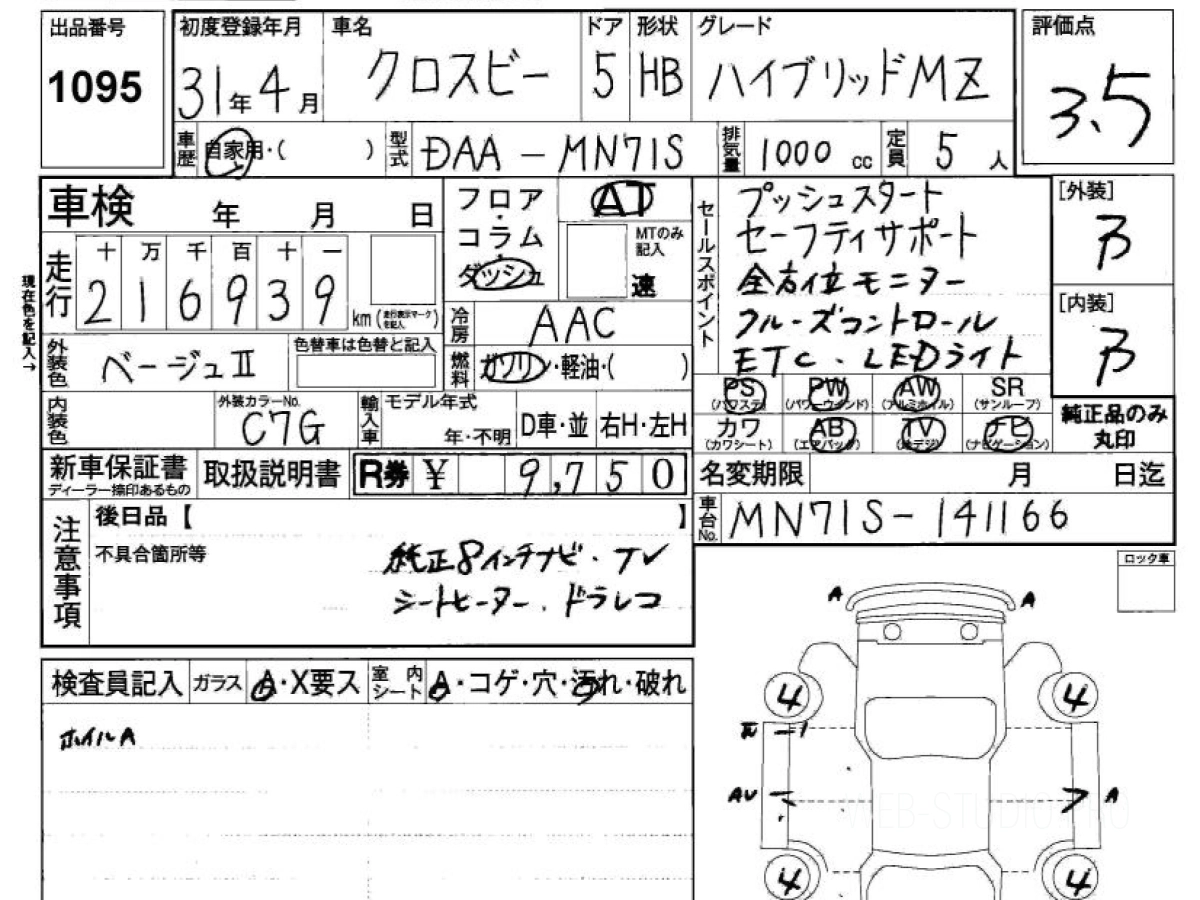 出品番号
1095
初度登録年月 車名 ドア 形状 グレード
31年4月 クロスビー 5 HB ハイブリッドMZ
評価点
3.5
車歴 自家用・( ) 型式 DAA-MN71S 排気量 1000 cc 定員 5 人
車検 年 月 日
フロア・コラム・ダッシュ
AT
MTのみ記入
速
セールスポイント
プッシュスタート
セーフティサポート
全方位モニター
クルーズコントロール
ETC・LEDライト
[外装]
B
[内装]
B
現在色を記入→
走行
十 万 千 百 十 一
2 1 6 9 3 9 km (走行表示マークを記入)
冷房 AAC
外装色 ベージュⅡ 色替車は色替と記入
燃料 ガソリン・軽油・( )
PS (パワステ) PW (パワーウインド) AW (アルミホイル) SR (サンルーフ)
カワ (カワシート) AB (エアバッグ) TV (地デジ) ナビ (ナビゲーション)
純正品のみ
丸印
内装色 外装カラーNo. C7G 輸入車 モデル年式 年・不明 D車・並 右H・左H
新車保証書 ディーラー捺印あるもの 取扱説明書 R券 ¥ 9,750
名変期限 月 日迄
車台No. MN71S-141166
注意事項
後日品【 】
不具合箇所等
純正8インチナビ・TV
シートヒーター、ドラレコ
ロック車
検査員記入 ガラス A・X要ス 室内シート A・コゲ・穴・汚れ・破れ
ホイルA
A A
4 4
AU A
4 4
WEB-STUDIO.PRO